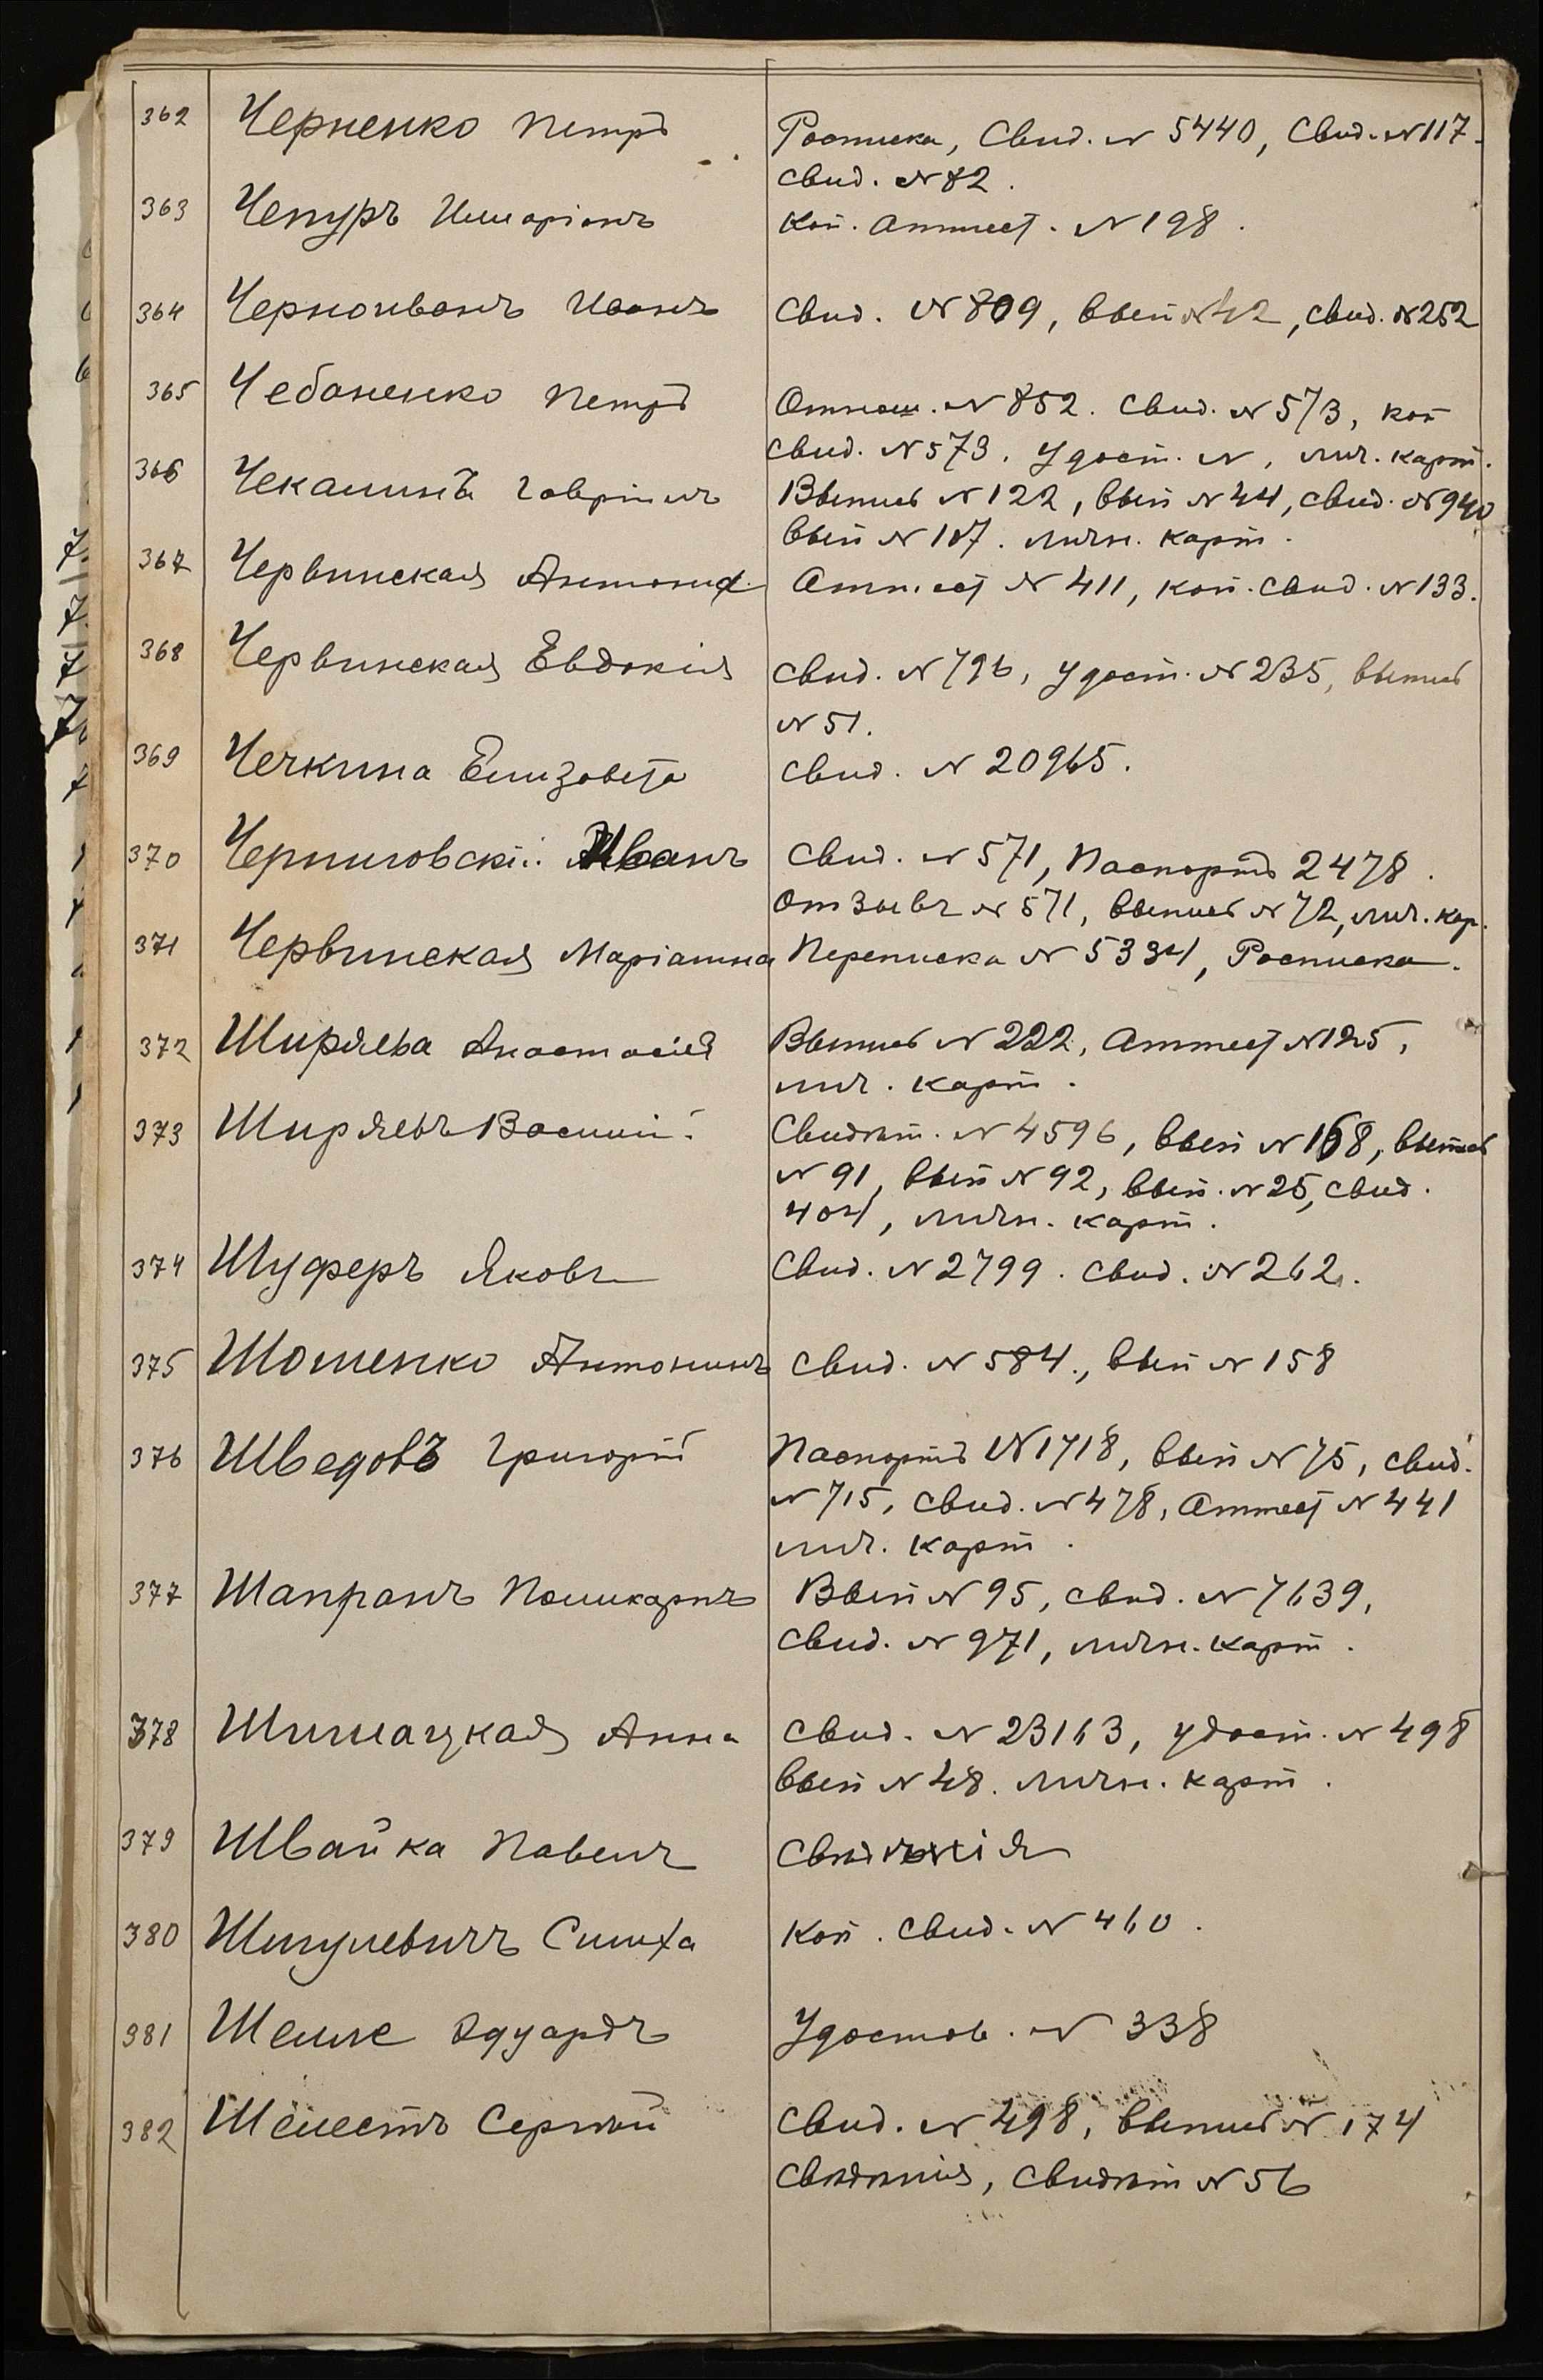 362 Черненко Петръ Росписка, Свид. № 5440, Свид. № 117.
свид. № 82.
363 Чепуръ Илларіонъ Коп. Аттест. № 198.
364 Черноиванъ Иванъ Свид. № 809, вып № 42, свид. № 252
365 Чебаненко Петръ Отнош. № 852. Свид. № 573, коп
свид. № 573. Удост. №, лич. карт.
366 Чекалинъ Гавріилъ Выпись № 122, вып № 44, свид. № 940
вып № 107. личн. карт.
367 Червинская Антонина Аттест № 411, коп. свид. № 133.
368 Червинская Евдокія Свид. № 796, Удост. № 235, выпись
№ 51.
369 Чечкина Елизавета Свид. № 20965.
370 Черниговскій Иванъ Свид. № 571, Паспортъ 2478.
Отзывъ № 571, выпись № 72, лич. кар.
371 Червинская Маріанна Переписка № 5334, Росписка.
372 Ширяева Анастасія Выпись № 222, Аттест № 125,
лич. карт.
373 Ширяевъ Василій Свидѣт. № 4596, вып № 168, выпись
№ 91, вып № 92, вып. № 25, свид.
404, личн. карт.
374 Шуферъ Яковъ Свид. № 2799. свид. № 262.
375 Шоменко Антонинъ Свид. № 584., вып № 158
376 Шведовъ Григорій Паспортъ № 1718, вып № 75, свид.
№ 715, свид. № 478, Аттест № 441
лич. карт.
377 Шапранъ Поликарпъ Вып № 95, свид. № 7639,
свид. № 971, личн. карт.
378 Шимацкая Анна Свид. № 23163, удост. № 498
вып № 48. личн. карт.
379 Швайка Павелъ Свѣдѣнія
380 Шигулевичъ Симха Коп. Свид. № 460.
381 Шелле Эдуардъ Удостов. № 338
382 Шелестъ Сергѣй Свид. № 498, выпись № 174
Свѣдѣнія, Свидѣт № 56